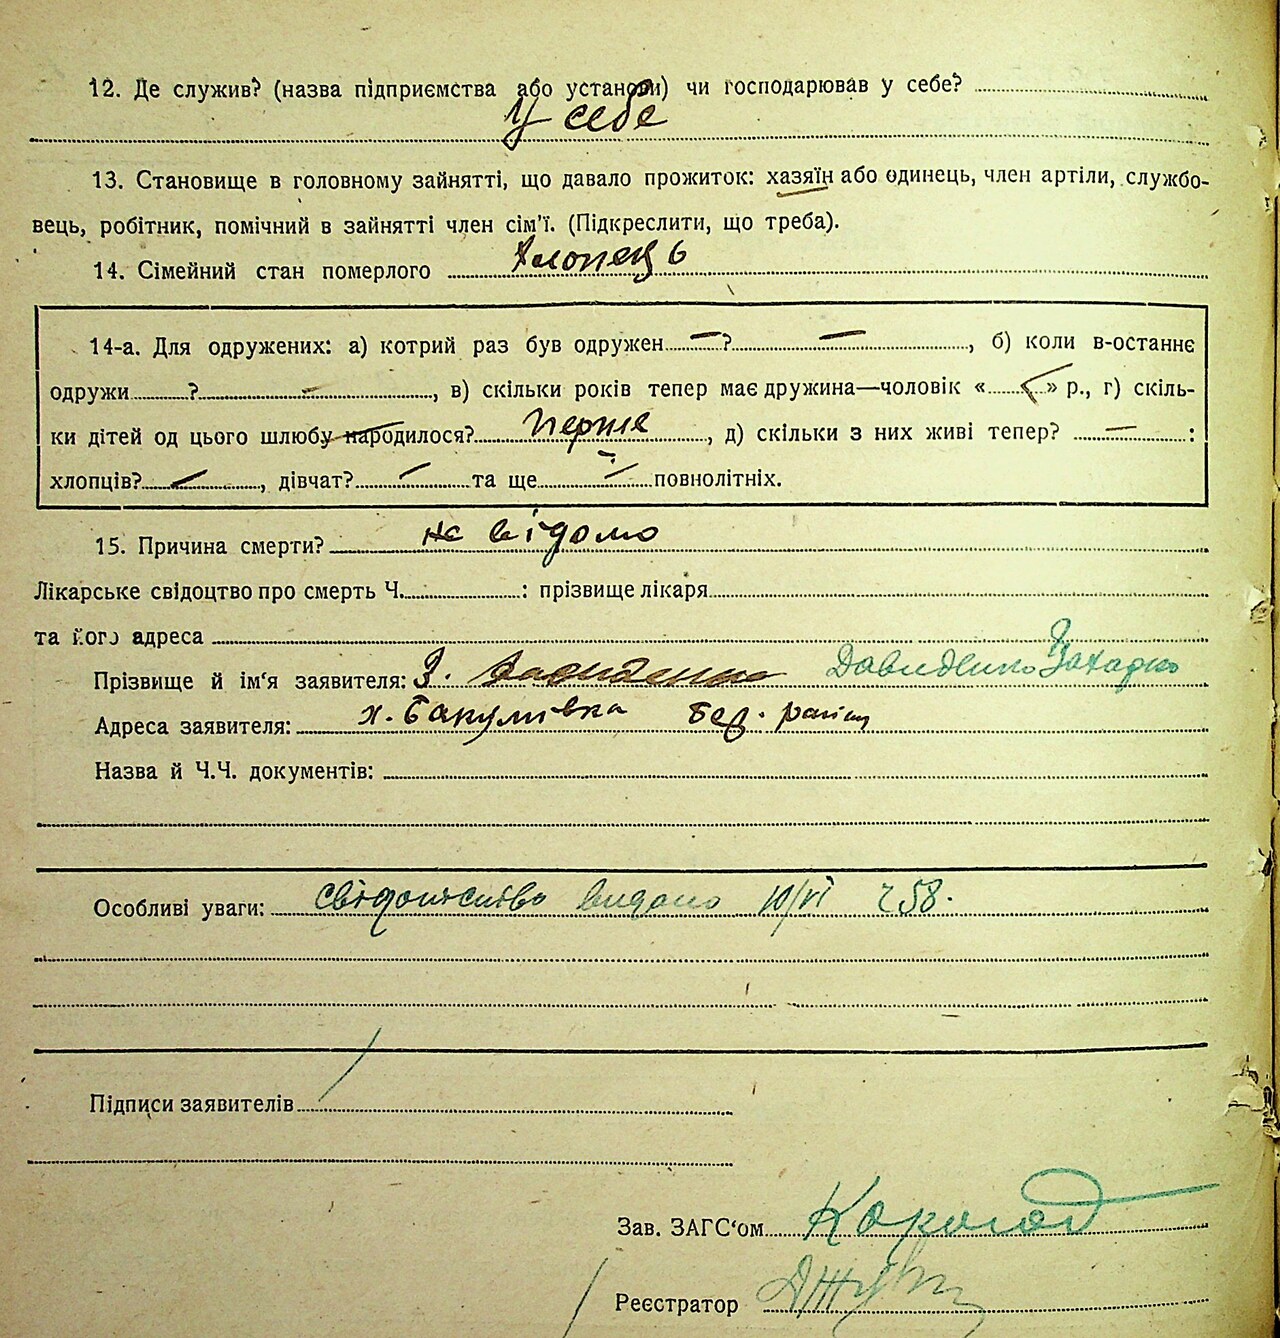 12. Де служив? (назва підприємства або установи) чи господарював у себе?
У себе
13. Становище в головному зайнятті, що давало прожиток: хазяїн або одинець, член артіли, службо-
вець, робітник, помічний в зайнятті член сім'ї. (Підкреслити, що треба).
14. Сімейний стан померлого Хлопець
14-а. Для одружених: а) котрий раз був одружен — ? —, б) коли в-останнє
одружи ? —, в) скільки років тепер має дружина—чоловік « » р., г) скіль-
ки дітей од цього шлюбу народилося? перше, д) скільки з них живі тепер? — :
хлопців? —, дівчат? — та ще — повнолітніх.
15. Причина смерти? не відомо
Лікарське свідоцтво про смерть Ч. : прізвище лікаря
та його адреса
Прізвище й ім'я заявителя: З. Давиденко Давиденко Захарко
Адреса заявителя: х. Бакумівка Бер. район
Назва й Ч.Ч. документів:
Особливі уваги: видано 10/VI ч 58.
Підписи заявителів
Зав. ЗАГС'ом
Реєстратор